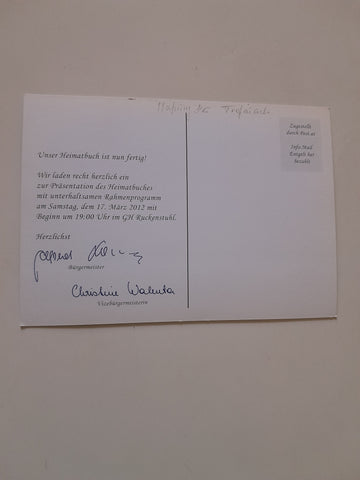 Zugestellt
durch Post.at
Info.Mail
Entgelt bar
bezahlt
Unser Heimatbuch ist nun fertig!
Wir laden recht herzlich ein
zur Präsentation des Heimatbuches
mit unterhaltsamen Rahmenprogramm
am Samstag, den 17. März 2012 mit
Beginn um 19:00 Uhr im GH Ruckenstuhl.
Herzlichst
Bürgermeister
Christine Walenta
Vizebürgermeisterin